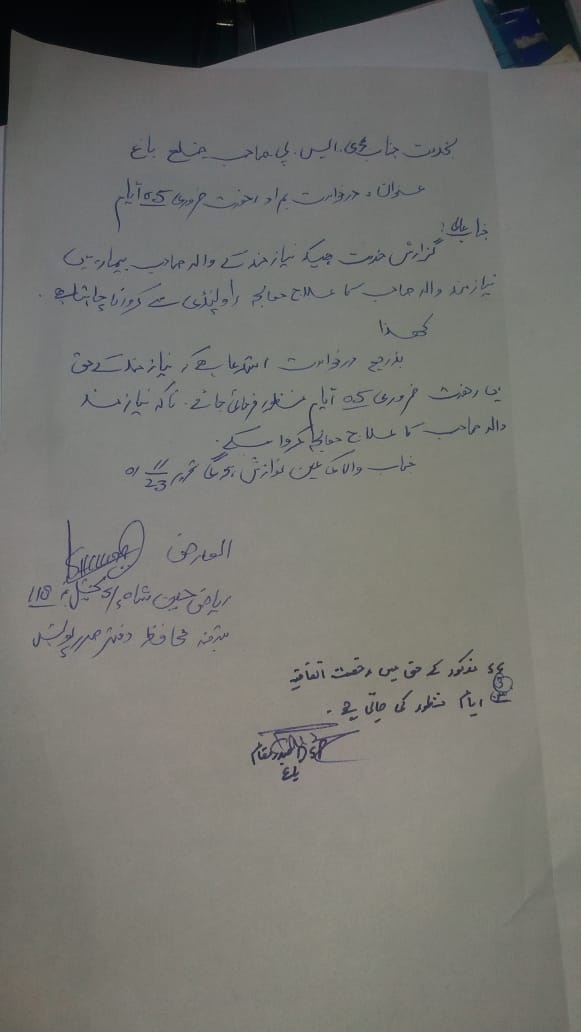 بخدمت جناب ایس. پی. صاحب ضلع باغ
عنوان: درخواست بمراد رخصت ضروری 05 ایام
جناب عالی!
گزارش خدمت ہیکہ نیاز مند کے والد صاحب بیمار ہیں
نیاز مند والد صاحب کا علاج معالجہ راولپنڈی سے کروانا چاہتا ہے.
لھذا
بذریعہ درخواست استدعا ہے کہ نیاز مند کے حق
میں رخصت ضروری 05 ایام منظور فرمائی جائے. تاکہ نیاز مند
والد صاحب کا علاج معالجہ کروا سکے.
جناب والا کی عین نوازش ہوگی
العارض
ریاض حسین شاہ 118
محافظ دفتر صدر پولیس
مذکور کے حق میں رخصت اتفاقیہ
ایام منظور کی جاتی ہے.
باغ